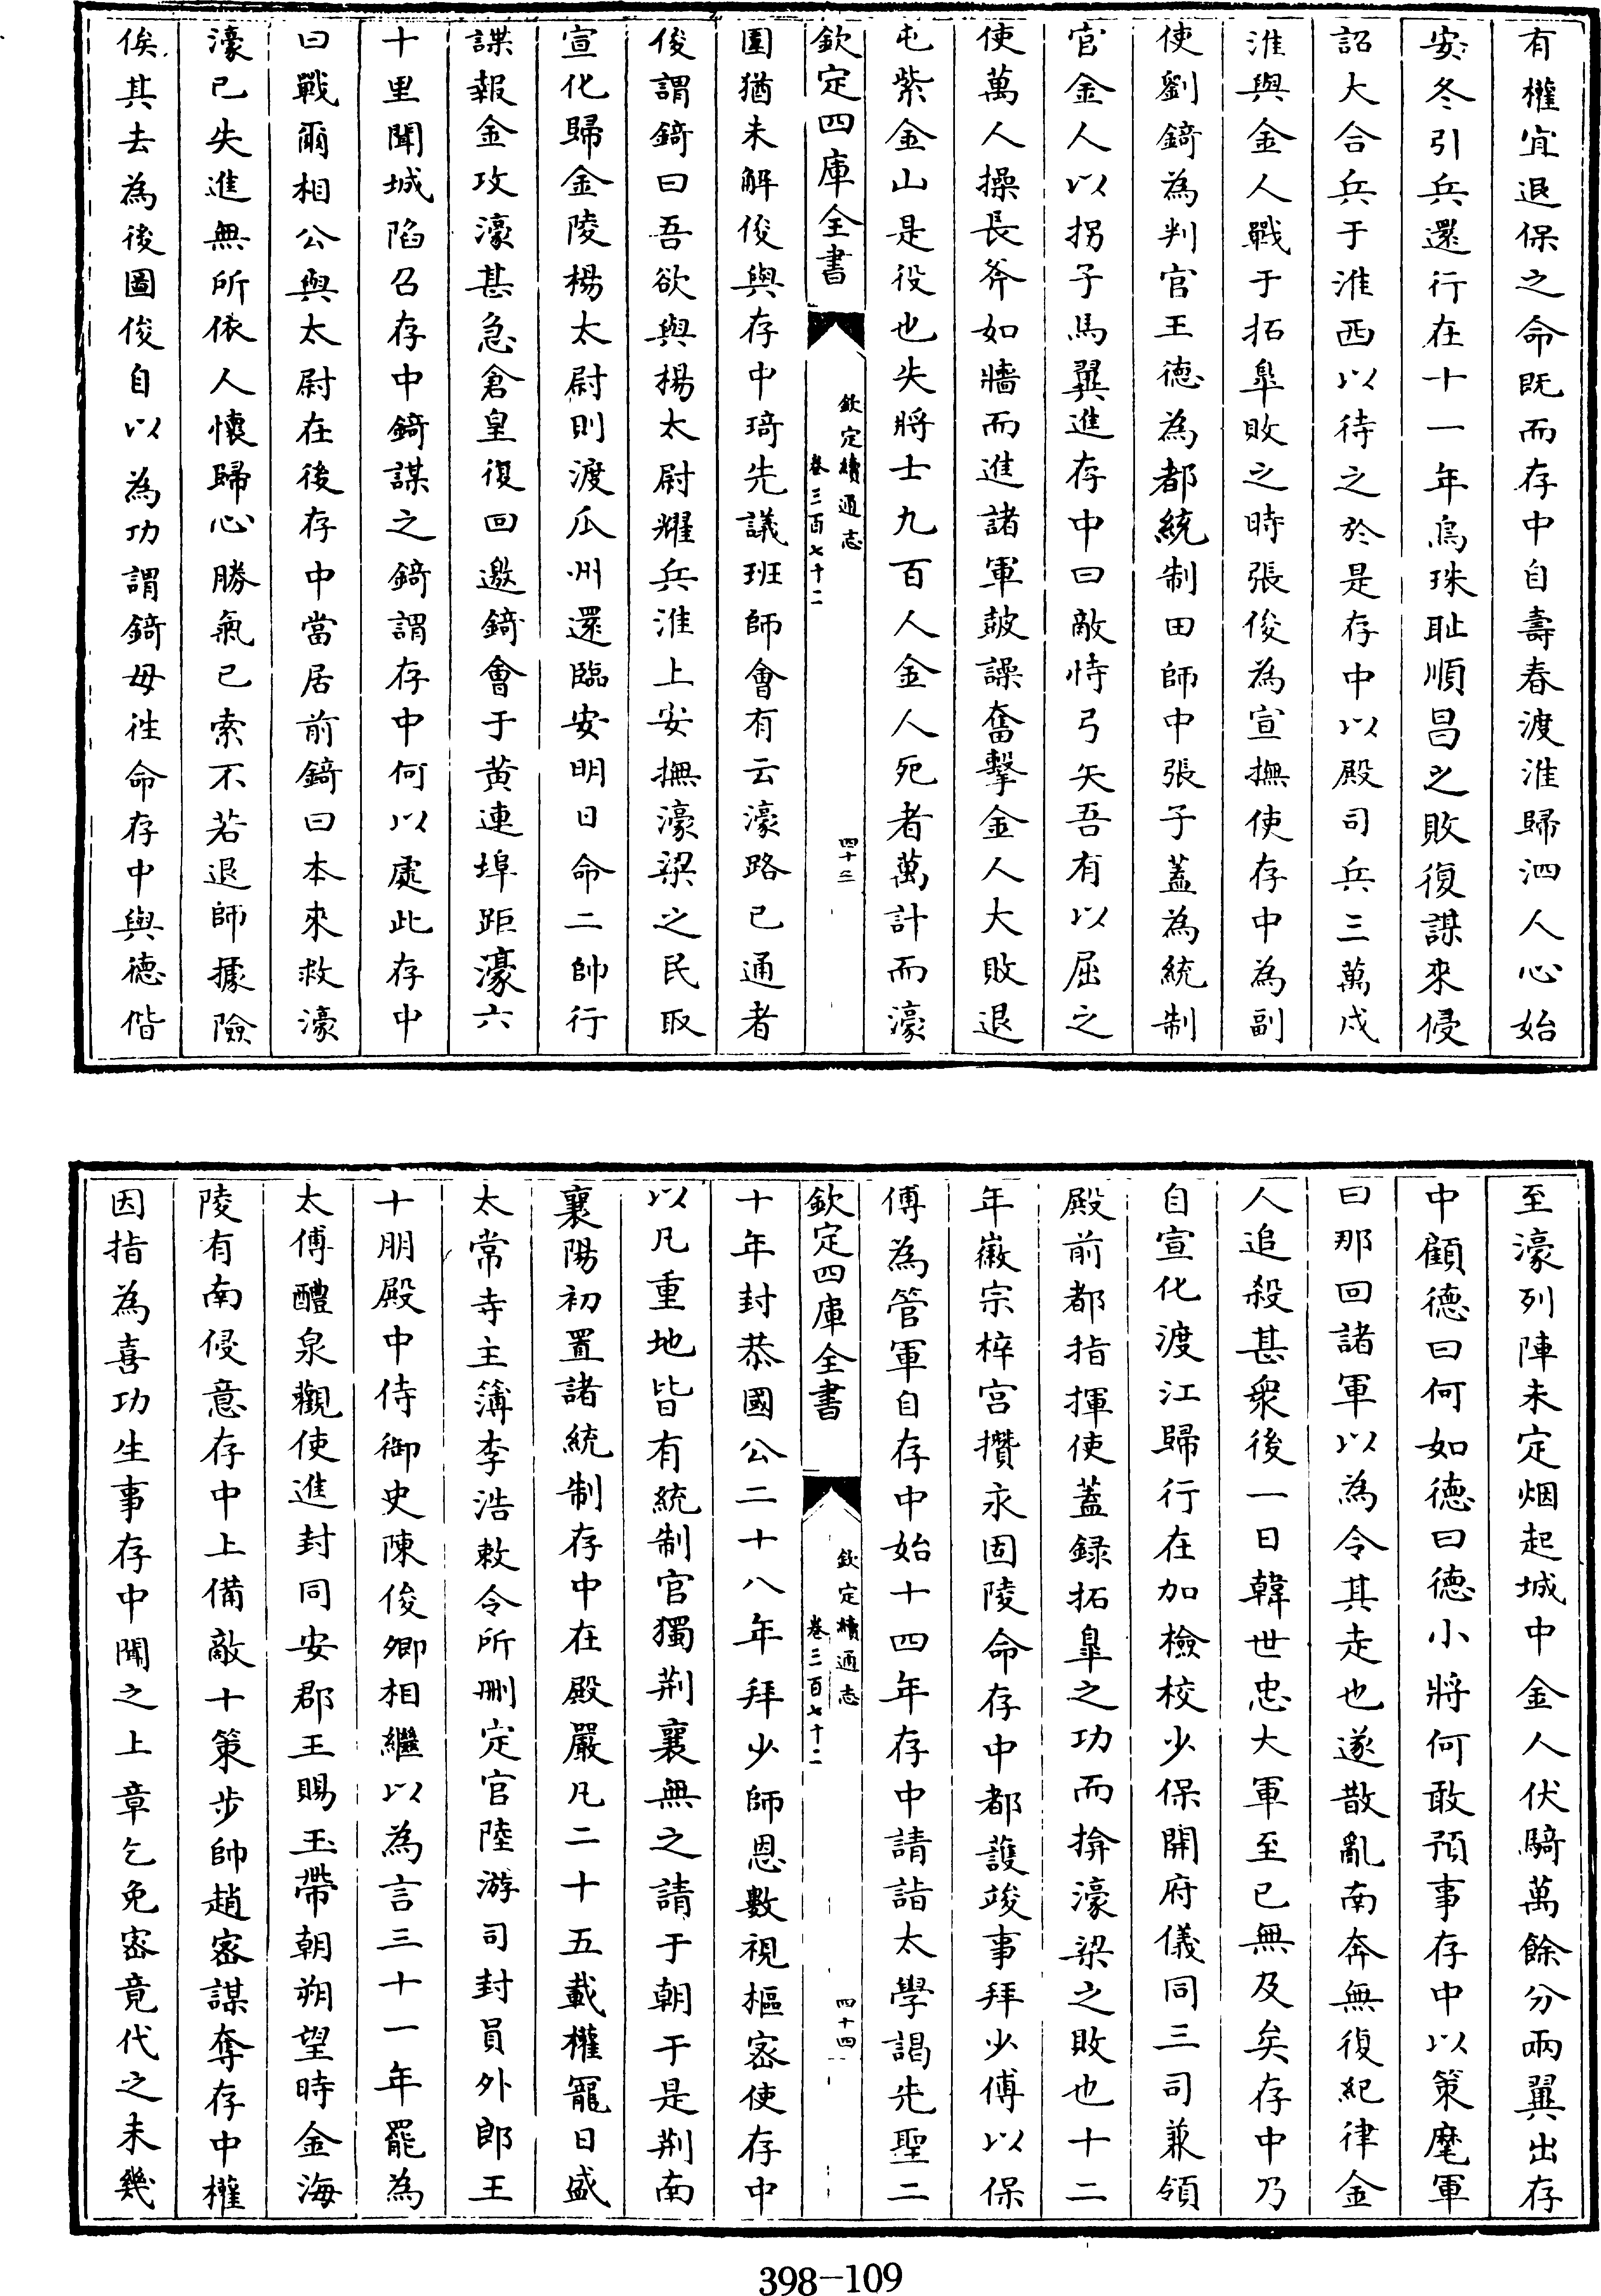 有權宜退保之命既而存中自壽春渡淮歸泗人心始
安冬引兵還行在十一年烏珠耻順昌之敗復謀來侵
詔大合兵于淮西以待之於是存中以殿司兵三萬戍
淮與金人戰于拓臯敗之時張俊為宣撫使存中為副
使劉錡為判官王德為都統制田師中張子蓋為統制
官金人以拐子馬翼進存中曰敵恃弓矢吾有以屈之
使萬人操長斧如牆而進諸軍鼓譟奮擊金人大敗退
屯紫金山是役也失將士九百人金人死者萬計而濠
欽定四庫全書
欽定續通志
卷三百七十二
四十三
圍猶未解俊與存中琦先議班師會有云濠路已通者
俊謂錡曰吾欲與楊太尉耀兵淮上安撫濠梁之民取
宣化歸金陵楊太尉則渡瓜州還臨安明日命二帥行
諜報金攻濠甚急倉皇復回邀錡會于黄連埠距濠六
十里聞城陷召存中錡謀之錡謂存中何以處此存中
曰戰爾相公與太尉在後存中當居前錡曰本來救濠
濠已失進無所依人懷歸心勝氣已索不若退師據險
俟其去為後圖俊自以為功謂錡毋徃命存中與德偕
至濠列陣未定烟起城中金人伏騎萬餘分兩翼出存
中顧德曰何如德曰德小將何敢預事存中以策麾軍
曰那回諸軍以為令其走也遂散亂南奔無復紀律金
人追殺甚衆後一日韓世忠大軍至已無及矣存中乃
自宣化渡江歸行在加檢校少保開府儀同三司兼領
殿前都指揮使蓋録拓臯之功而揜濠梁之敗也十二
年徽宗梓宫攢永固陵命存中都護竣事拜少傅以保
傅為管軍自存中始十四年存中請詣太學謁先聖二
欽定四庫全書
欽定續通志
卷三百七十二
四十四
十年封恭國公二十八年拜少師恩數視樞密使存中
以凡重地皆有統制官獨荆襄無之請于朝于是荆南
襄陽初置諸統制存中在殿嚴凡二十五載權寵日盛
太常寺主簿李浩敕令所删定官陸游司封員外郎王
十朋殿中侍御史陳俊卿相繼以為言三十一年罷為
太傅醴泉觀使進封同安郡王賜玉帶朝朔望時金海
陵有南侵意存中上備敵十策步帥趙密謀奪存中權
因指為喜功生事存中聞之上章乞免密竟代之未幾
398-109